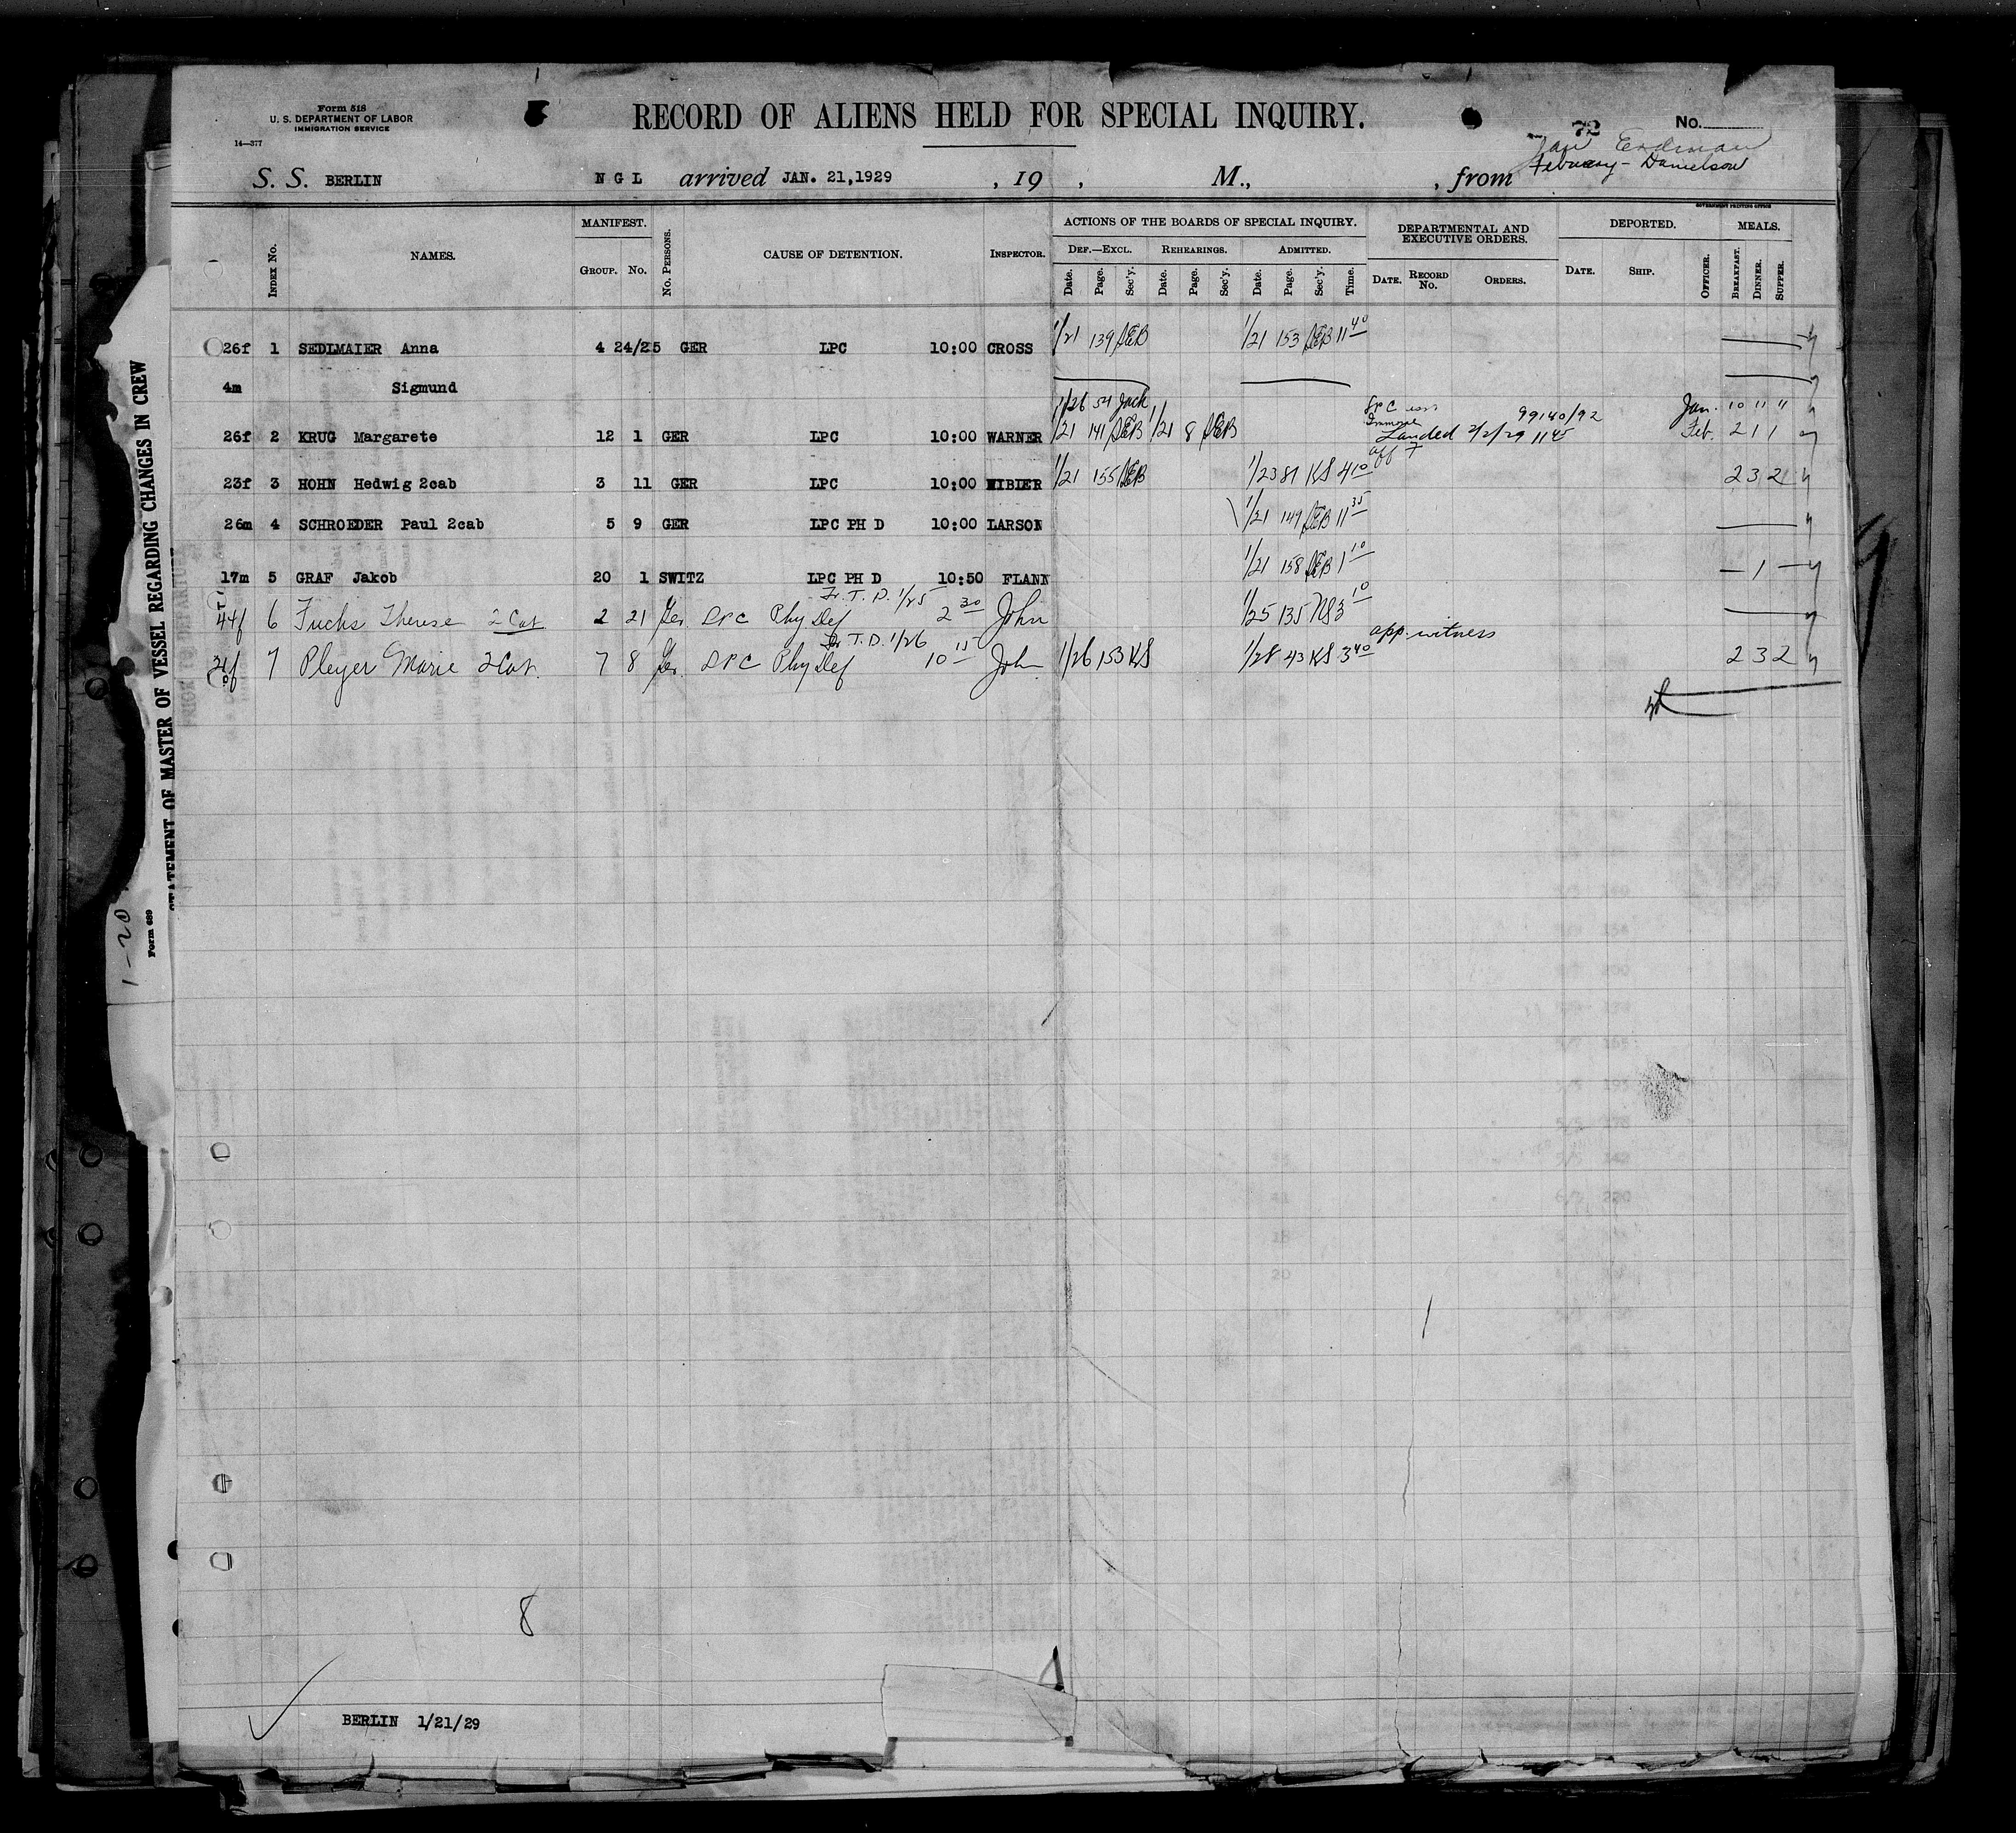 Form 518
U. S. DEPARTMENT OF LABOR
IMMIGRATION SERVICE
14—377
RECORD OF ALIENS HELD FOR SPECIAL INQUIRY.
72 No.
Jan Erdman
February - Danielson
S. S. BERLIN N G L arrived JAN. 21,1929 , 19 , M., , from
GOVERNMENT PRINTING OFFICE
INDEX No. NAMES. MANIFEST. GROUP. No. No. PERSONS. CAUSE OF DETENTION. INSPECTOR. ACTIONS OF THE BOARDS OF SPECIAL INQUIRY. DEPARTMENTAL AND EXECUTIVE ORDERS. DEPORTED. MEALS.
DEF.—EXCL. REHEARINGS. ADMITTED.
Date. Page. Sec'y. Date. Page. Sec'y. Date. Page. Sec'y. Time. DATE. RECORD No. ORDERS. DATE. SHIP. OFFICER. BREAKFAST. DINNER. SUPPER.
26f 1 SEDLMAIER Anna 4 24/25 GER LPC 10:00 CROSS 1/21 139 SEB 1/21 153 SEB 11 40
4m Sigmund
1/26 54 LPC 99140/92 Jan. 10 11 11
26f 2 KRUG Margarete 12 1 GER LPC 10:00 WARNER 1/21 141 SEB 1/21 8 SEB Landed 2/2/29 11 45 Feb. 2 1 1
23f 3 HOHN Hedwig 2cab 3 11 GER LPC 10:00 WIBIER 1/21 155 SEB 1/23 81 KS 4 10 2 3 2
26m 4 SCHROEDER Paul 2cab 5 9 GER LPC PH D 10:00 LARSON 1/21 149 SEB 11 35
17m 5 GRAF Jakob 20 1 SWITZ LPC PH D 10:50 FLANN 1/21 158 SEB 1 10 — 1 —
Fr. T. D. 1/25
44f 6 Fuchs Therese 2 Cab 2 21 Ger. LPC Phy Def 2 30 John 1/25 135 KS 3 10
Fr. T. D. 1/26 app. witness
f 7 Pleyer Marie 2 Cab. 7 8 Ger. LPC Phy Def 10 15 John 1/26 153 KS 1/28 43 KS 3 40 2 3 2
STATEMENT OF MASTER OF VESSEL REGARDING CHANGES IN CREW
Form 689
1-20
8
BERLIN 1/21/29